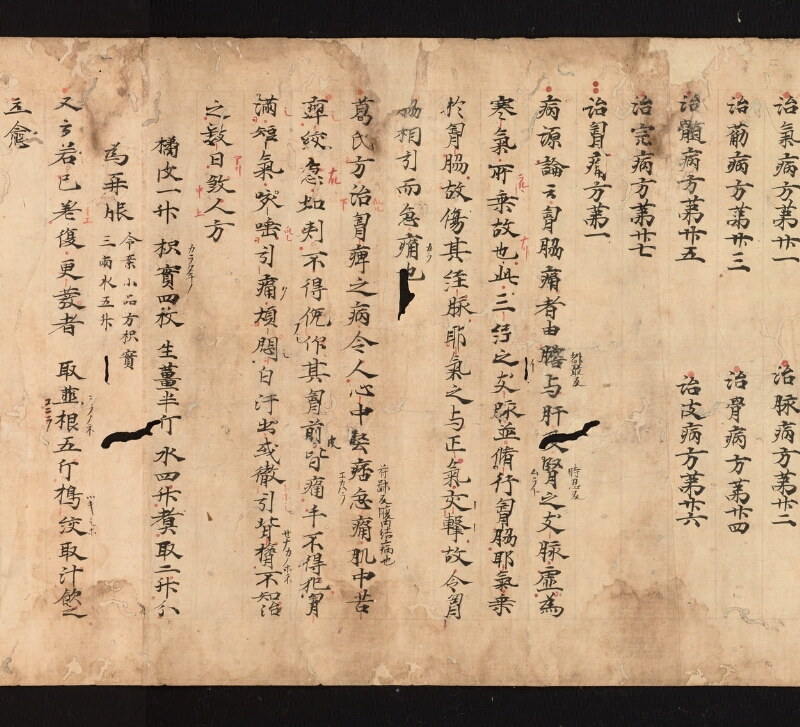 治氣病方第廿一 治脉病方第廿二
治筋病方第廿三 治骨病方第廿四
治髓病方第廿五 治皮病方第廿六
治完病方第廿七
治胷痛方第一
病源論云胷脇痛者由膽与肝及腎之支脉虛為
都敢反
時忍反
寒氣所乘故也此三经之支脉並脩行胷脇耶氣乘
於胷脇故傷其经脉耶氣之与正氣交擊故令胷
脇相引而急痛也
葛氏方治胷痺之病令人心中堅痞急痛肌中苦
反腹内結病也
痺絞急如刺不得俛仰其胷前皆痛手不得犯胷
滿短氣咳唾引痛煩悶白汗出或徹引背膂不知治
セナカノホネ
之數日煞人方
橘皮一升 枳實四枚 生薑半斤 水四升煑取二升分
カラタチノ
為再服 今案小品方枳實
三兩水五升
又方若已差復更發者 取韮根五斤搗絞取汁飲之
立愈